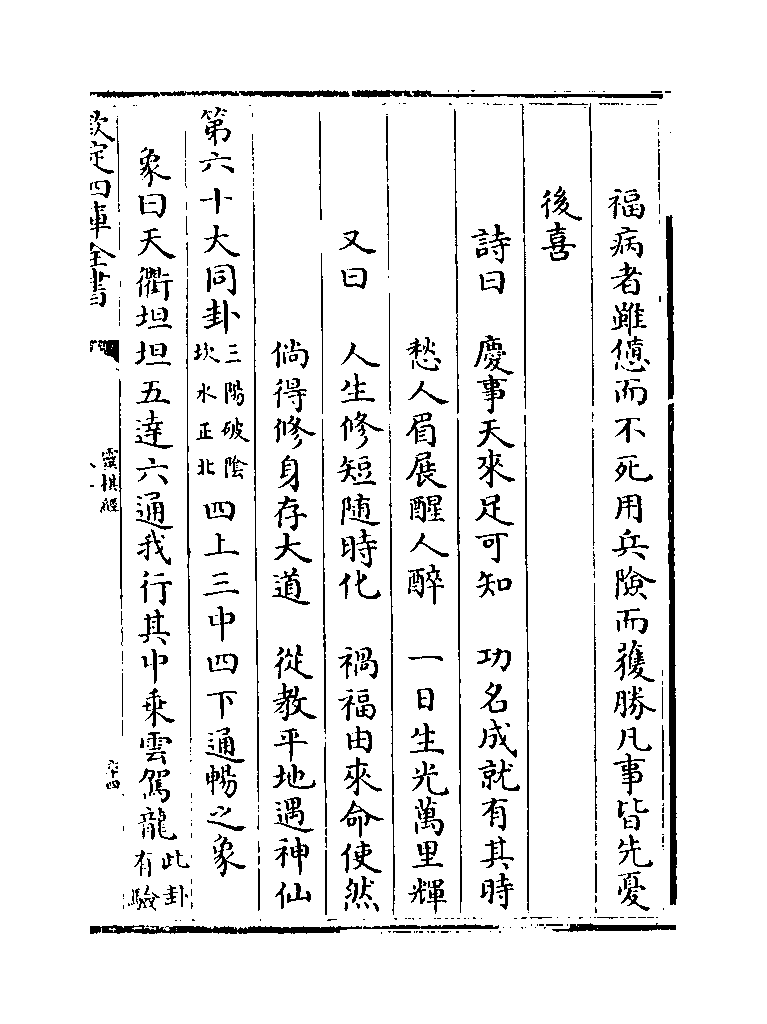 福病者雖憊而不死用兵險而獲勝凡事皆先憂
後喜
詩曰　慶事天來足可知　功名成就有其時
愁人眉展醒人醉　一日生光萬里輝
又曰　人生修短随時化　禍福由來命使然
倘得修身存大道　從教平地遇神仙
第六十大同卦三陽破陰坎水正北四上三中四下通暢之象
象曰天衢坦坦五逹六通我行其中乘雲駕龍此卦有驗
欽定四庫全書
靈棋經
六十四